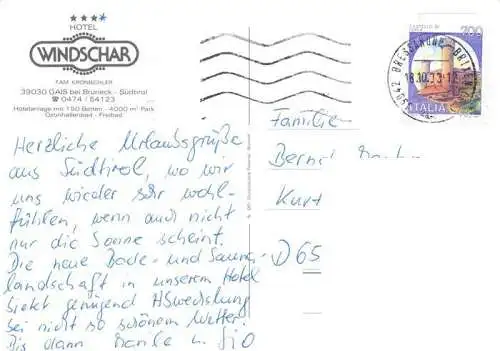 HOTEL
WINDSCHAR
FAM. KRONBICHLER
39030 GAIS bei Bruneck - Südtirol
☎ 0474 / 54123
Hotelanlage mit 150 Betten - 4000 m² Park
Hallenbad - Freibad
Herzliche Urlaubsgrüße
aus Südtirol, wo wir
uns wieder sehr wohl-
fühlen, wenn auch nicht
nur die Sonne scheint.
Die neue Bade- und Sauna-
landschaft in unserem Hotel
bietet genügend Abwechslung
bei nicht so schönem Wetter.
Bis dann
700
ITALIA
39042 BRESSANONE - BRIXEN
Familie
Kurt
D 65